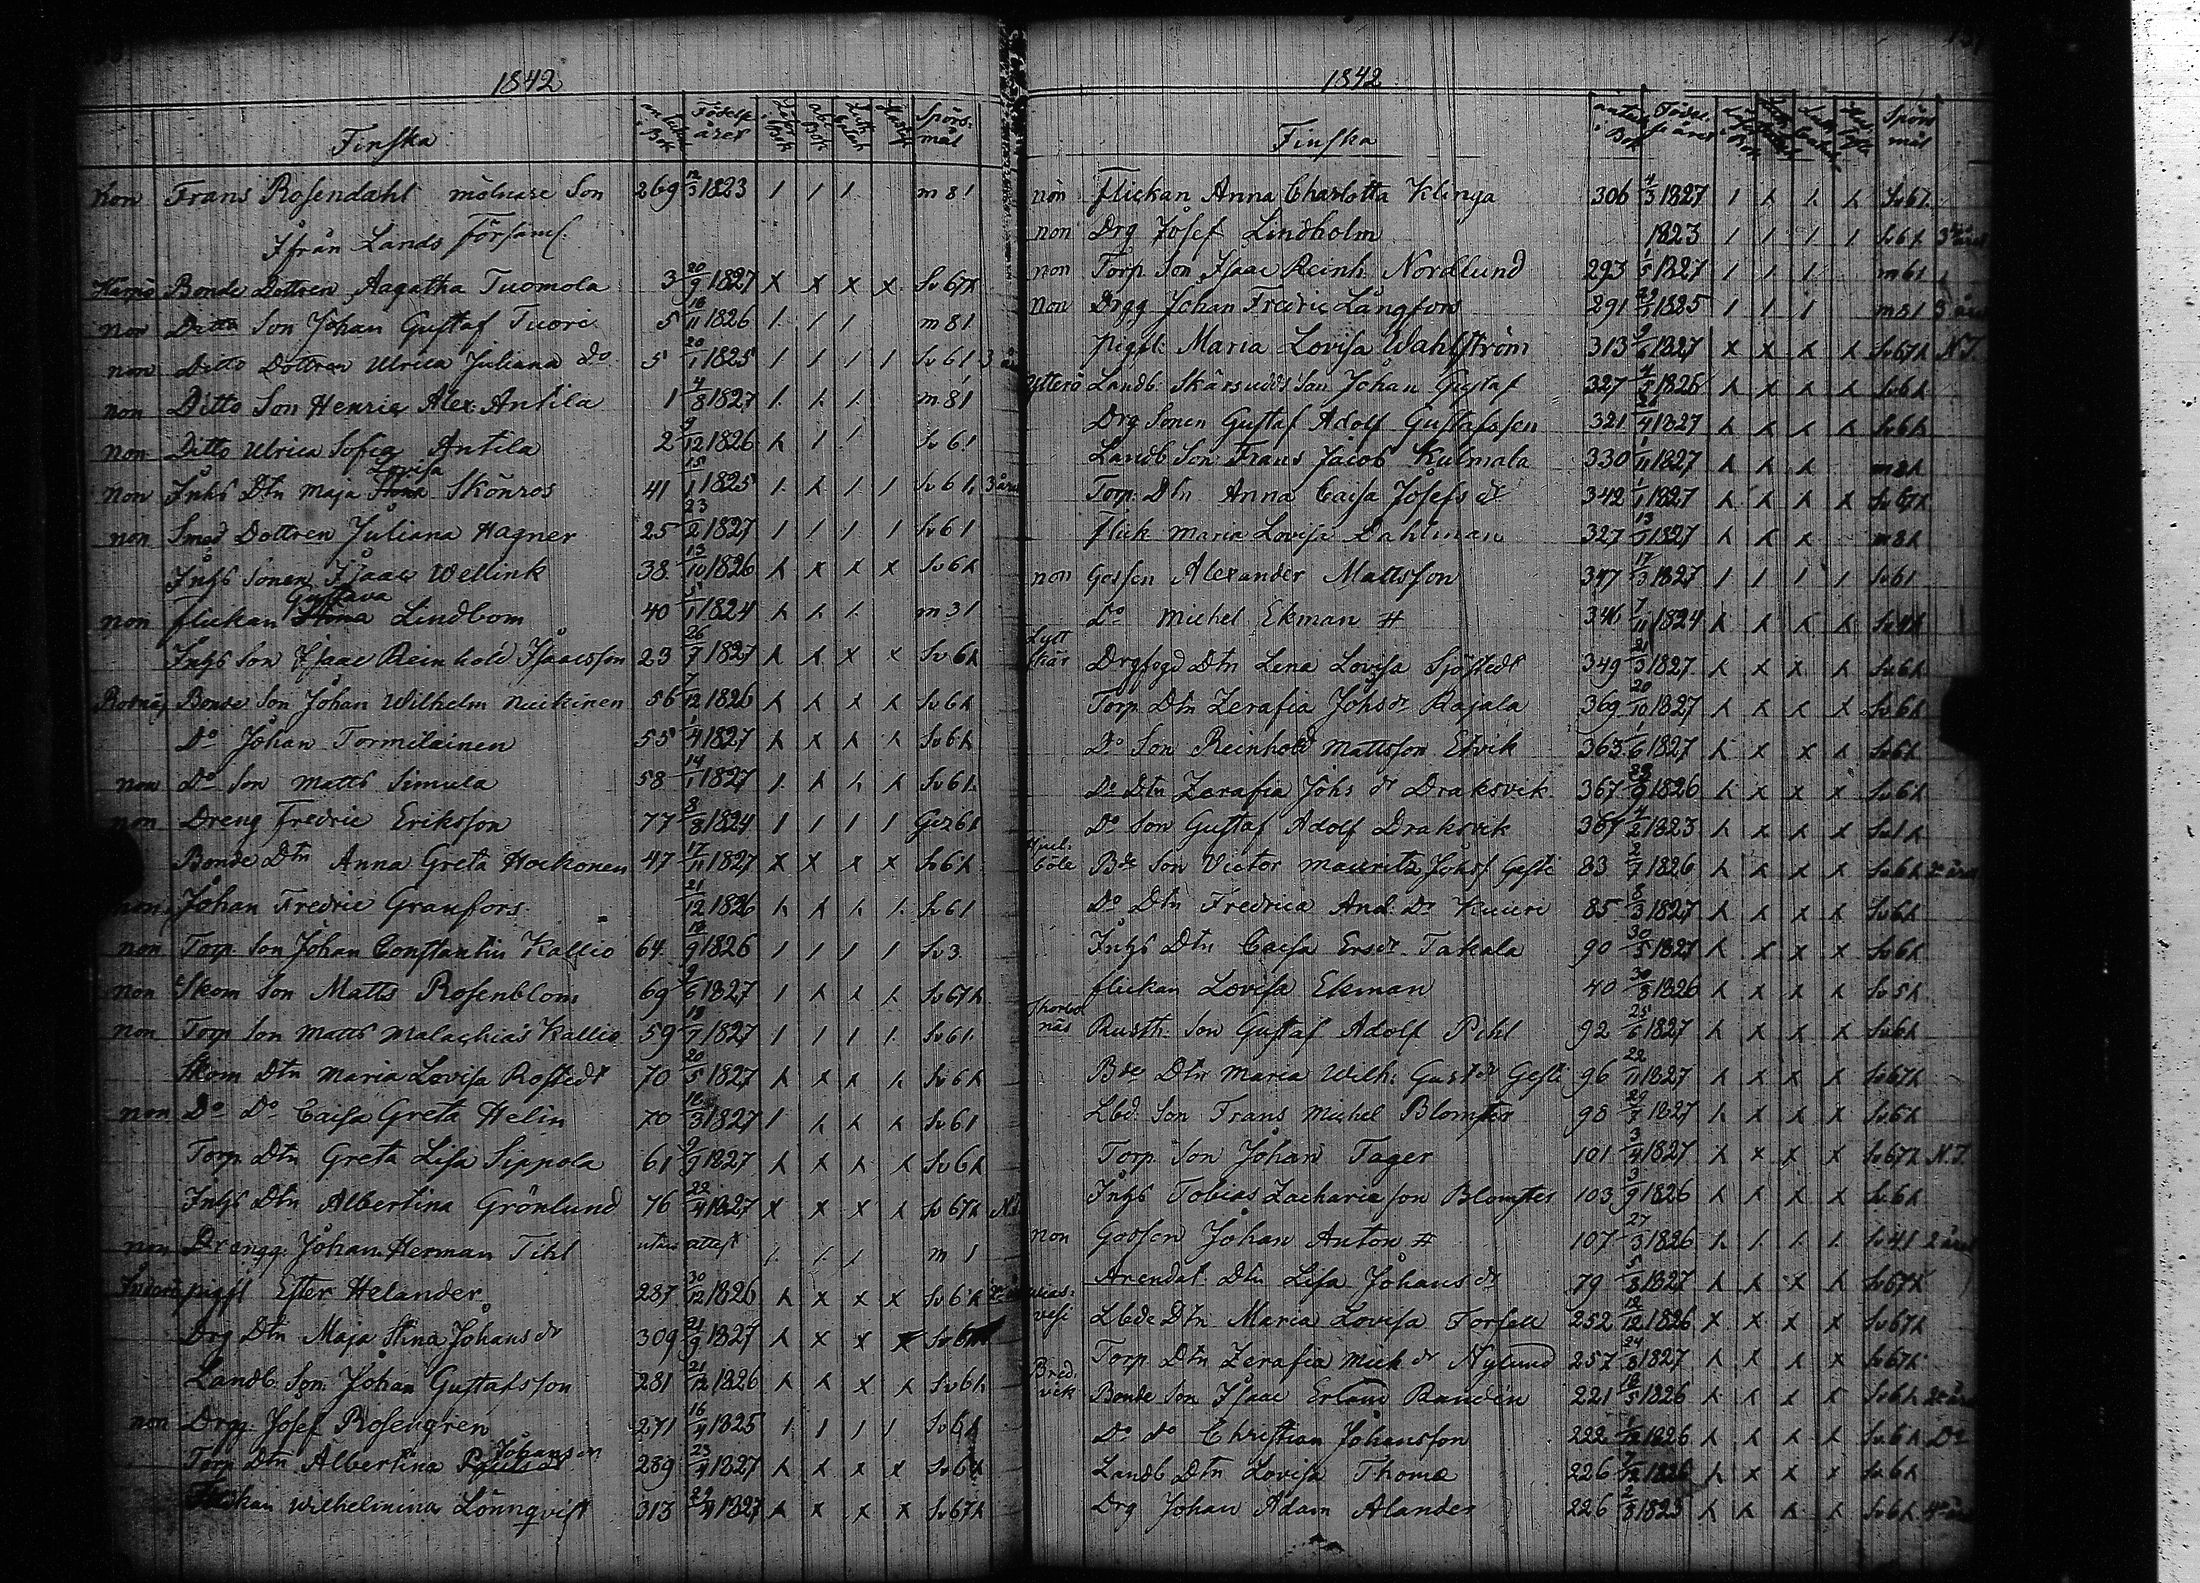 1842
Finska
Födelse året
Spörsmål
non Frans Rosendahl mölnare Son 269 12/3 1823 / / / m 8 /
Ifrån Lands Församl.
Bonde Dottren Aagatha Tuomola 3 20/9 1827 x x x x Sv 67 x
non Ditto Son Johan Gustaf Tuori 5 16/11 1826 / / / m 8 /
non Ditto Dottren Ulrica Juliana Do 5 20/1 1825 / / / / Sv 6 /
non Ditto Son Henric Alex. Antila 1 4/8 1827 / / / m 8 /
non Ditto Ulrica Sofia Antila 2 9/12 1826 x / / Sv 6 /
non Inhs Dtn Maja Lovisa Skönros 41 15/1 1825 / x / / Sv 6 / 3 året
non Smed Dottren Juliana Hagner 25 23/2 1827 / / / / Sv 6 /
Inhs Sonen Isaac Wellink 38 13/10 1826 x x x x Sv 6 x
non flickan Gustava Lindbom 40 5/1 1824 x x / m 3 /
Inhs Son Isaac Reinhold Isaacsson 23 26/7 1827 x x x x Sv 6 x
Bonde Son Johan Wilhelm Nuikinen 56 7/12 1826 x x x x Sv 6 x
Do Johan Tormilainen 55 1/4 1827 x x x x Sv 6 x
non Do Son Matts Simula 58 14/1 1827 / x x x Sv 6 /
non Dreng Fredric Eriksson 77 8/8 1824 / / / /
Bonde Dtn Anna Greta Hockonen 47 17/11 1827 x x x x Sv 6 x
non Johan Fredric Granfors 21/12 1826 x x x / Sv 6 /
non Torp. Son Johan Constantin Kallio 64 18/9 1826 / / / / Sv 3
non Skom Son Matts Rosenblom 69 9/6 1827 / x x x Sv 67 x
non Torp Son Matts Malachias Kallio 59 18/7 1827 / / / / Sv 6 /
Skom Dtn Maria Lovisa Rostedt 70 20/5 1827 x x x x Sv 6 x
non Do Do Caisa Greta Helin 70 16/3 1827 / x x x Sv 6 /
Torp Dtn Greta Lisa Sippola 61 9/9 1827 x x x x Sv 6 x
Inhs Dtn Albertina Grönlund 76 22/4 1827 x x x x Sv 67 x
non Drengg. Johan Herman Tihl utan attest / / / m /
pigfl Ester Helander 287 30/12 1826 x x x x Sv 6 x
Drg Dtn Maja Stina Johans dr 309 21/9 1827 x x x x Sv 6
Landb. Son Johan Gustafsson 281 21/12 1826 x x x x Sv 6 x
non Drgg. Josef Rosengren 271 16/4 1825 / / / / Sv 6
Torp Dtn Albertina Johans dr 289 23/4 1827 x x x x Sv 6 x
Flickan Wilhelmina Lönnqvist 313 22/4 1827 x x x x Sv 67 x
1842
Finska
Spörsmål
non Flickan Anna Charlotta Klinga 306 4/3 1827 / x x x Sv 6 /
non Drg Josef Lindholm 1823 / / / / Sv 6 /
non Torp Son Isaac Reinh. Nordlund 293 1/5 1827 / / / m 6 /
non Drgg Johan Fredric Långfors 291 1825 / / / m 8 /
pigfl. Maria Lovisa Wahlström 313 9/6 1827 x x x x Sv 67 x N.T.
Ytterö Landb. Skärsudds Son Johan Gustaf 327 4/5 1826 x x x x Sv 6 x
Drg Sonen Gustaf Adolf Gustafsson 321 1827 x x x x Sv 6 x
Landb Son Frans Jacob Kulmala 330 1/11 1827 x x x m 8 x
Torp. Dtn Anna Caisa Josefs dr 342 1/1 1827 x x x x Sv 67 x
Flick Maria Lovisa Dahlman 327 1827 x x x m 8 x
non Gossen Alexander Mattsson 347 17/3 1827 / / / / Sv 6 /
Do Michel Ekman # 346 7/11 1824 x x x x
Lyttskär Drgfogd Dtn Lena Lovisa Sjöstedt 349 21/3 1827 x x x x Sv 6 x
Torp Dtn Zerafia Johs dr Rajala 369 20/10 1827 x x x x Sv 6 x
Do Son Reinhold Mattsson Edvik 363 1/6 1827 x x x x Sv 6 x
Do Dtn Zerafia Johs dr Draksvik 367 1826 x x x x Sv 6 x
Do Son Gustaf Adolf Draksvik 367 4/2 1823 x x x x
Hjulböle Bde Son Victor Mauritz Johss Gesti 83 2/7 1826 x x x x Sv 6 x
Do Dtn Fredrica And. Dr Kuieri 85 8/3 1827 x x x x Sv 6 x
Inhs Dtn Caisa Ersdr Takala 90 30/5 1827 x x x x Sv 6 x
flickan Lovisa Ekman 40 30/8 1826 x x x x Sv 5 x
Thorbolnäs Rusth. Son Gustaf Adolf Pihl 92 25/6 1827 x x x x Sv 6 x
Bde Dtn Maria Wilh. Gust dr Gesti 96 22/11 1827 x x x x Sv 67 x
Lbd. Son Frans Michel Blomster 98 29/7 1827 x x x x Sv 6 x
Torp Son Johan Tager 101 3/4 1827 x x x x Sv 67 x N.T.
Inhs Tobias Zacharie son Blomster 103 3/9 1826 x x x x Sv 6 x
non Gossen Johan Anton # 107 27/3 1826 / / / / Sv 4 / 2 året
Arendat. Dtn Lisa Johans dr 79 5/8 1827 x x x x Sv 67 x
Lbde Dtn Maria Lovisa Forsell 252 12/12 1826 x x x x Sv 67 x
Torp Dtn Zerafia Mich dr Nylund 257 24/8 1827 x x x x Sv 67 x
Bredvik Bonde Son Isaac Erland Randén 221 18/5 1826 x x x x Sv 6 x
Do do Christian Johansson 222 1826 x x x x Sv 6 x Do
Landb Dtn Lovisa Thome 226 1826 x x x x Sv 6 x
Drg Johan Adam Alander 226 2/8 1823 x x x x Sv 6 x